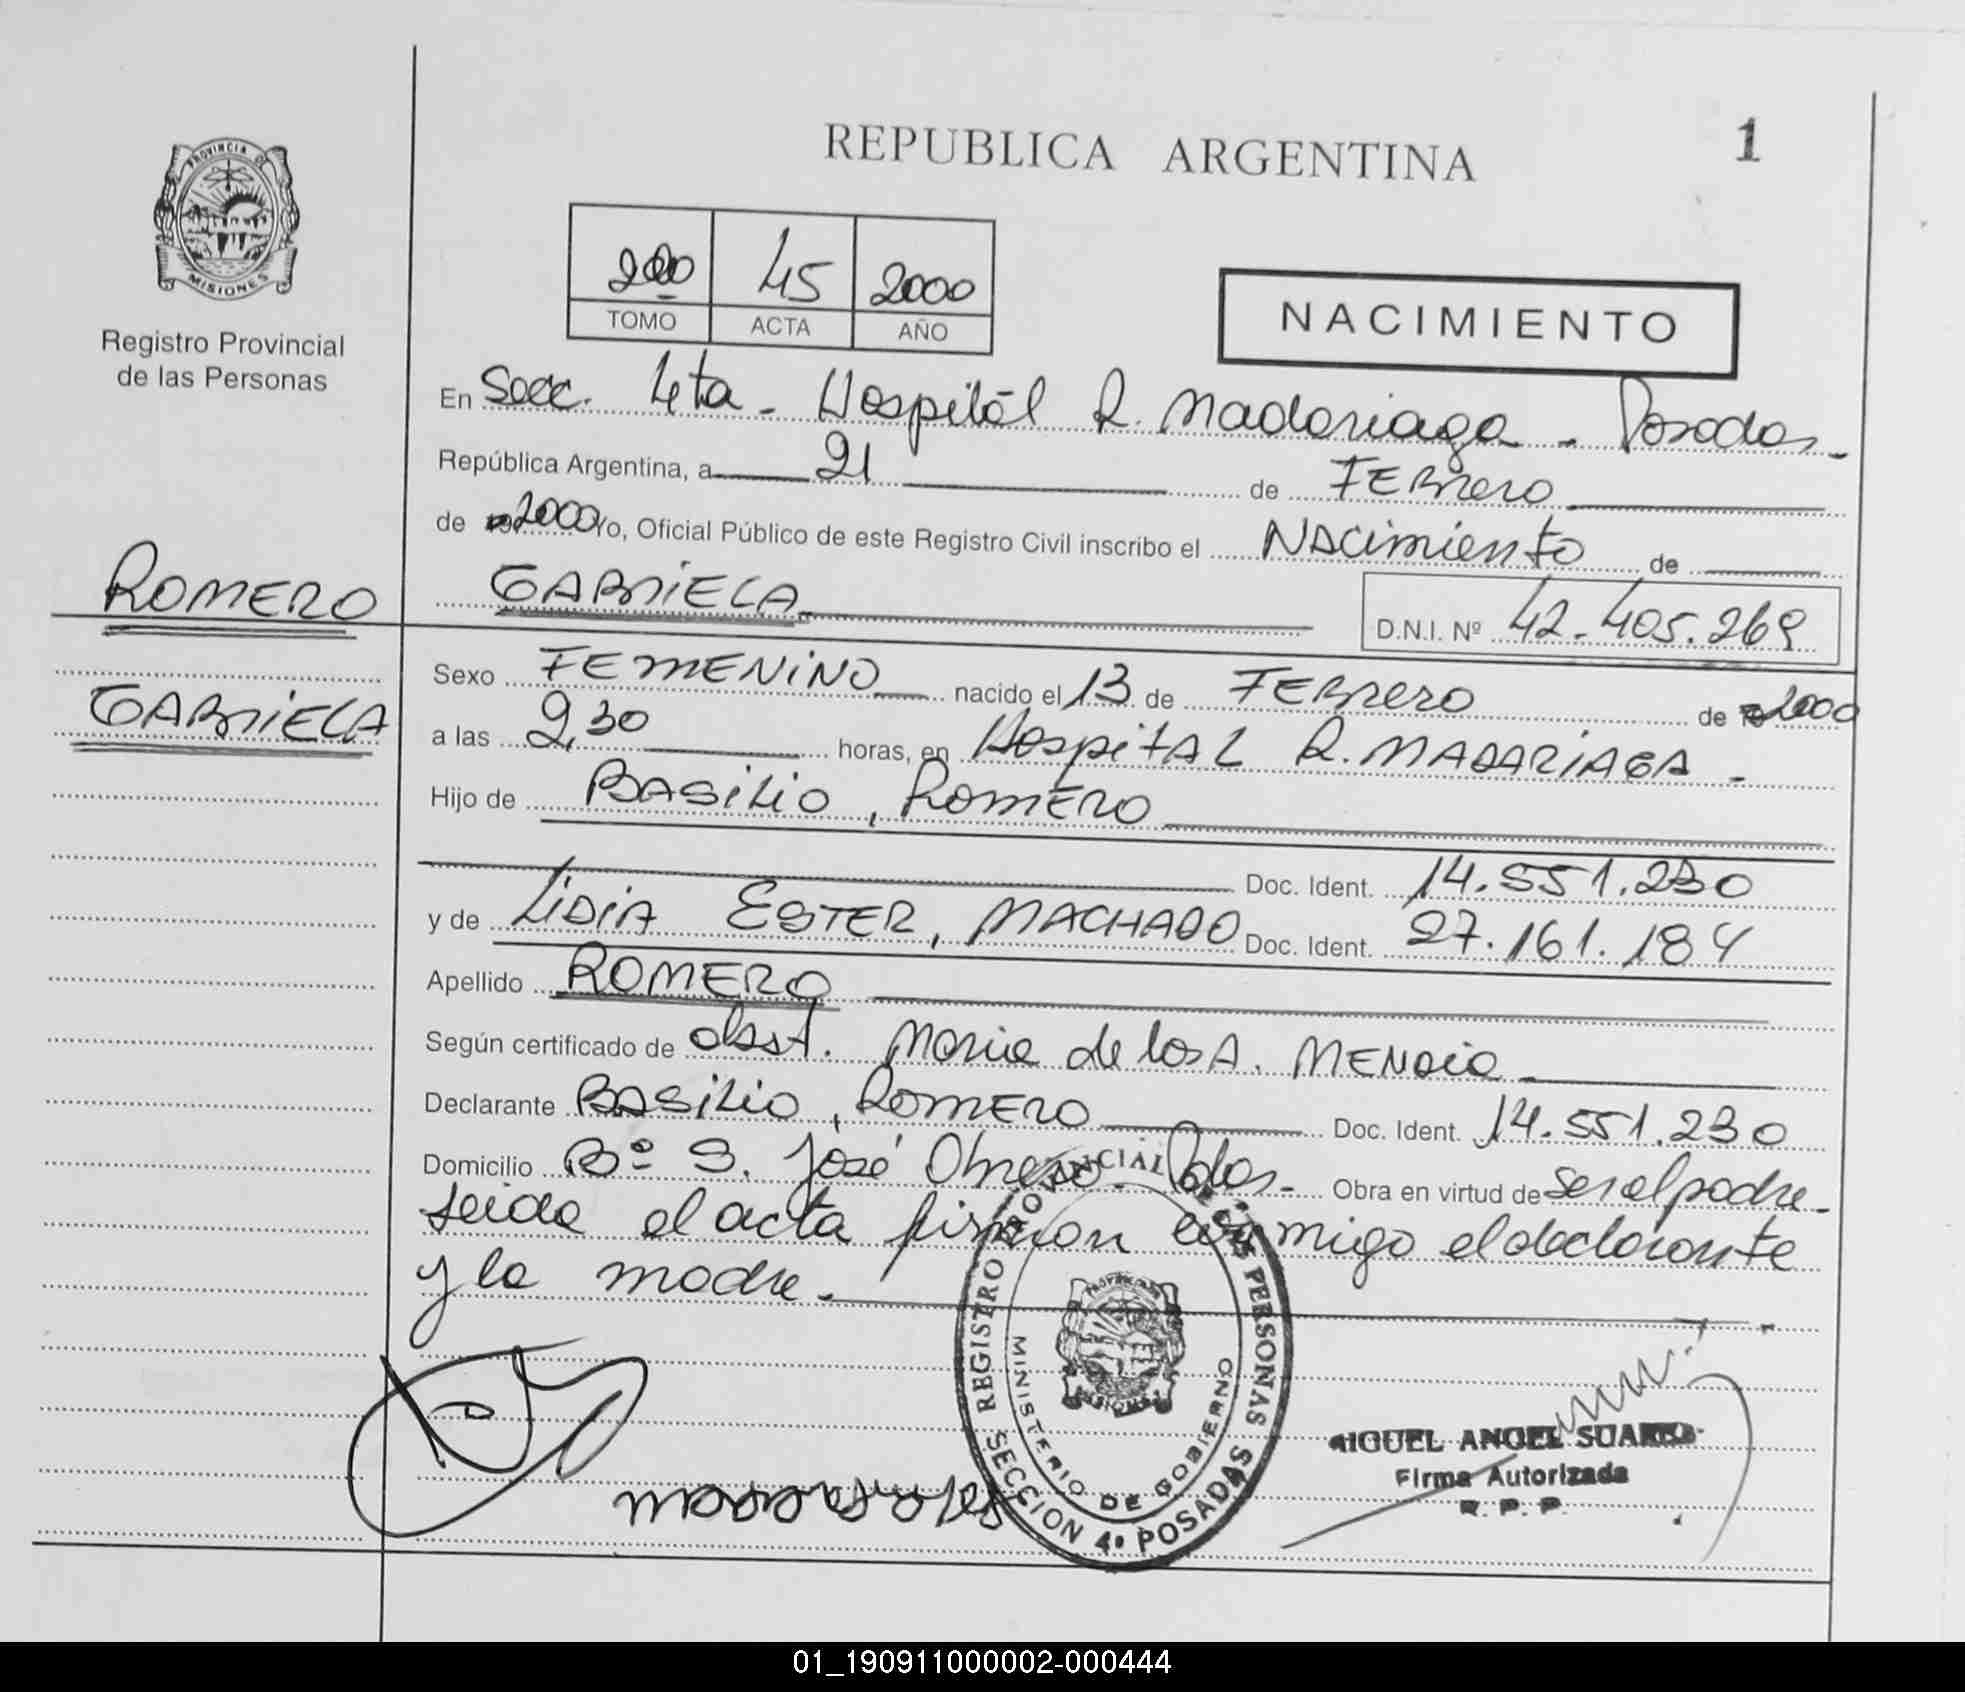 REPUBLICA ARGENTINA
1
PROVINCIA DE
MISIONES
Registro Provincial
de las Personas
45 2000
TOMO ACTA AÑO
NACIMIENTO
En Secc. 4ta - Hospital R. Madariaga - Posadas -
República Argentina, a 21 de FEBrero
de 2000 Yo, Oficial Público de este Registro Civil inscribo el NAcimiento de
ROMERO
GABRiELA
D.N.I. Nº 42.405.269
Sexo FEMENiNO nacido el 13 de FEBrero de 2000
GABRiELA
a las 9,30 horas, en HospitAL R. MADARiAGA -
Hijo de BASiLiO, ROMERO
Doc. Ident. 14.551.230
y de LiDiA ESTER, MACHADO Doc. Ident. 27.161.184
Apellido ROMERO
Según certificado de obst. Maria de los A. MENDiE
Declarante BASiLiO, ROMERO Doc. Ident. 14.551.230
Domicilio Bº S. José Obrero - Pdas. - Obra en virtud de ser el padre -
Leida el acta firman conmigo el declarante
y la madre. -
REGISTRO PROVINCIAL DE LAS PERSONAS
MINISTERIO DE GOBIERNO
SECCION 4ª POSADAS
MIGUEL ANGEL SUAREZ
Firma Autorizada
R. P. P.
01_190911000002-000444